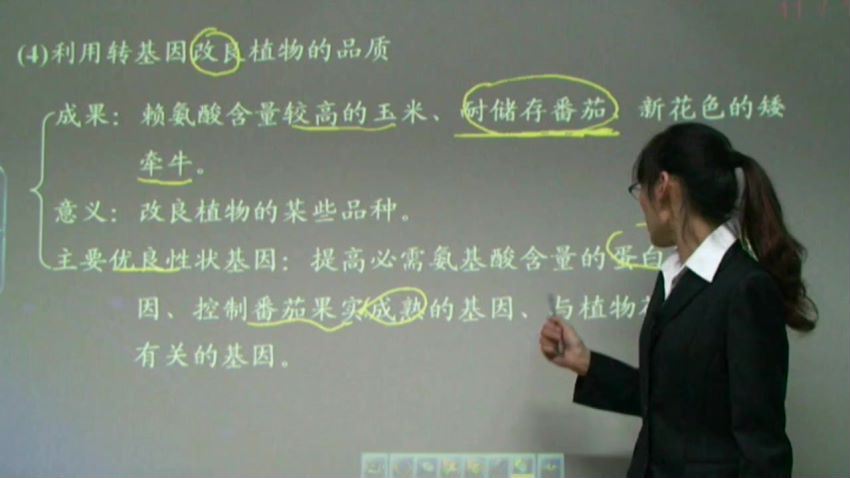 (4)利用转基因改良植物的品质
成果：赖氨酸含量较高的玉米、耐储存番茄、新花色的矮
牵牛。
意义：改良植物的某些品种。
主要优良性状基因：提高必需氨基酸含量的蛋白
因、控制番茄果实成熟的基因、与植物花
有关的基因。